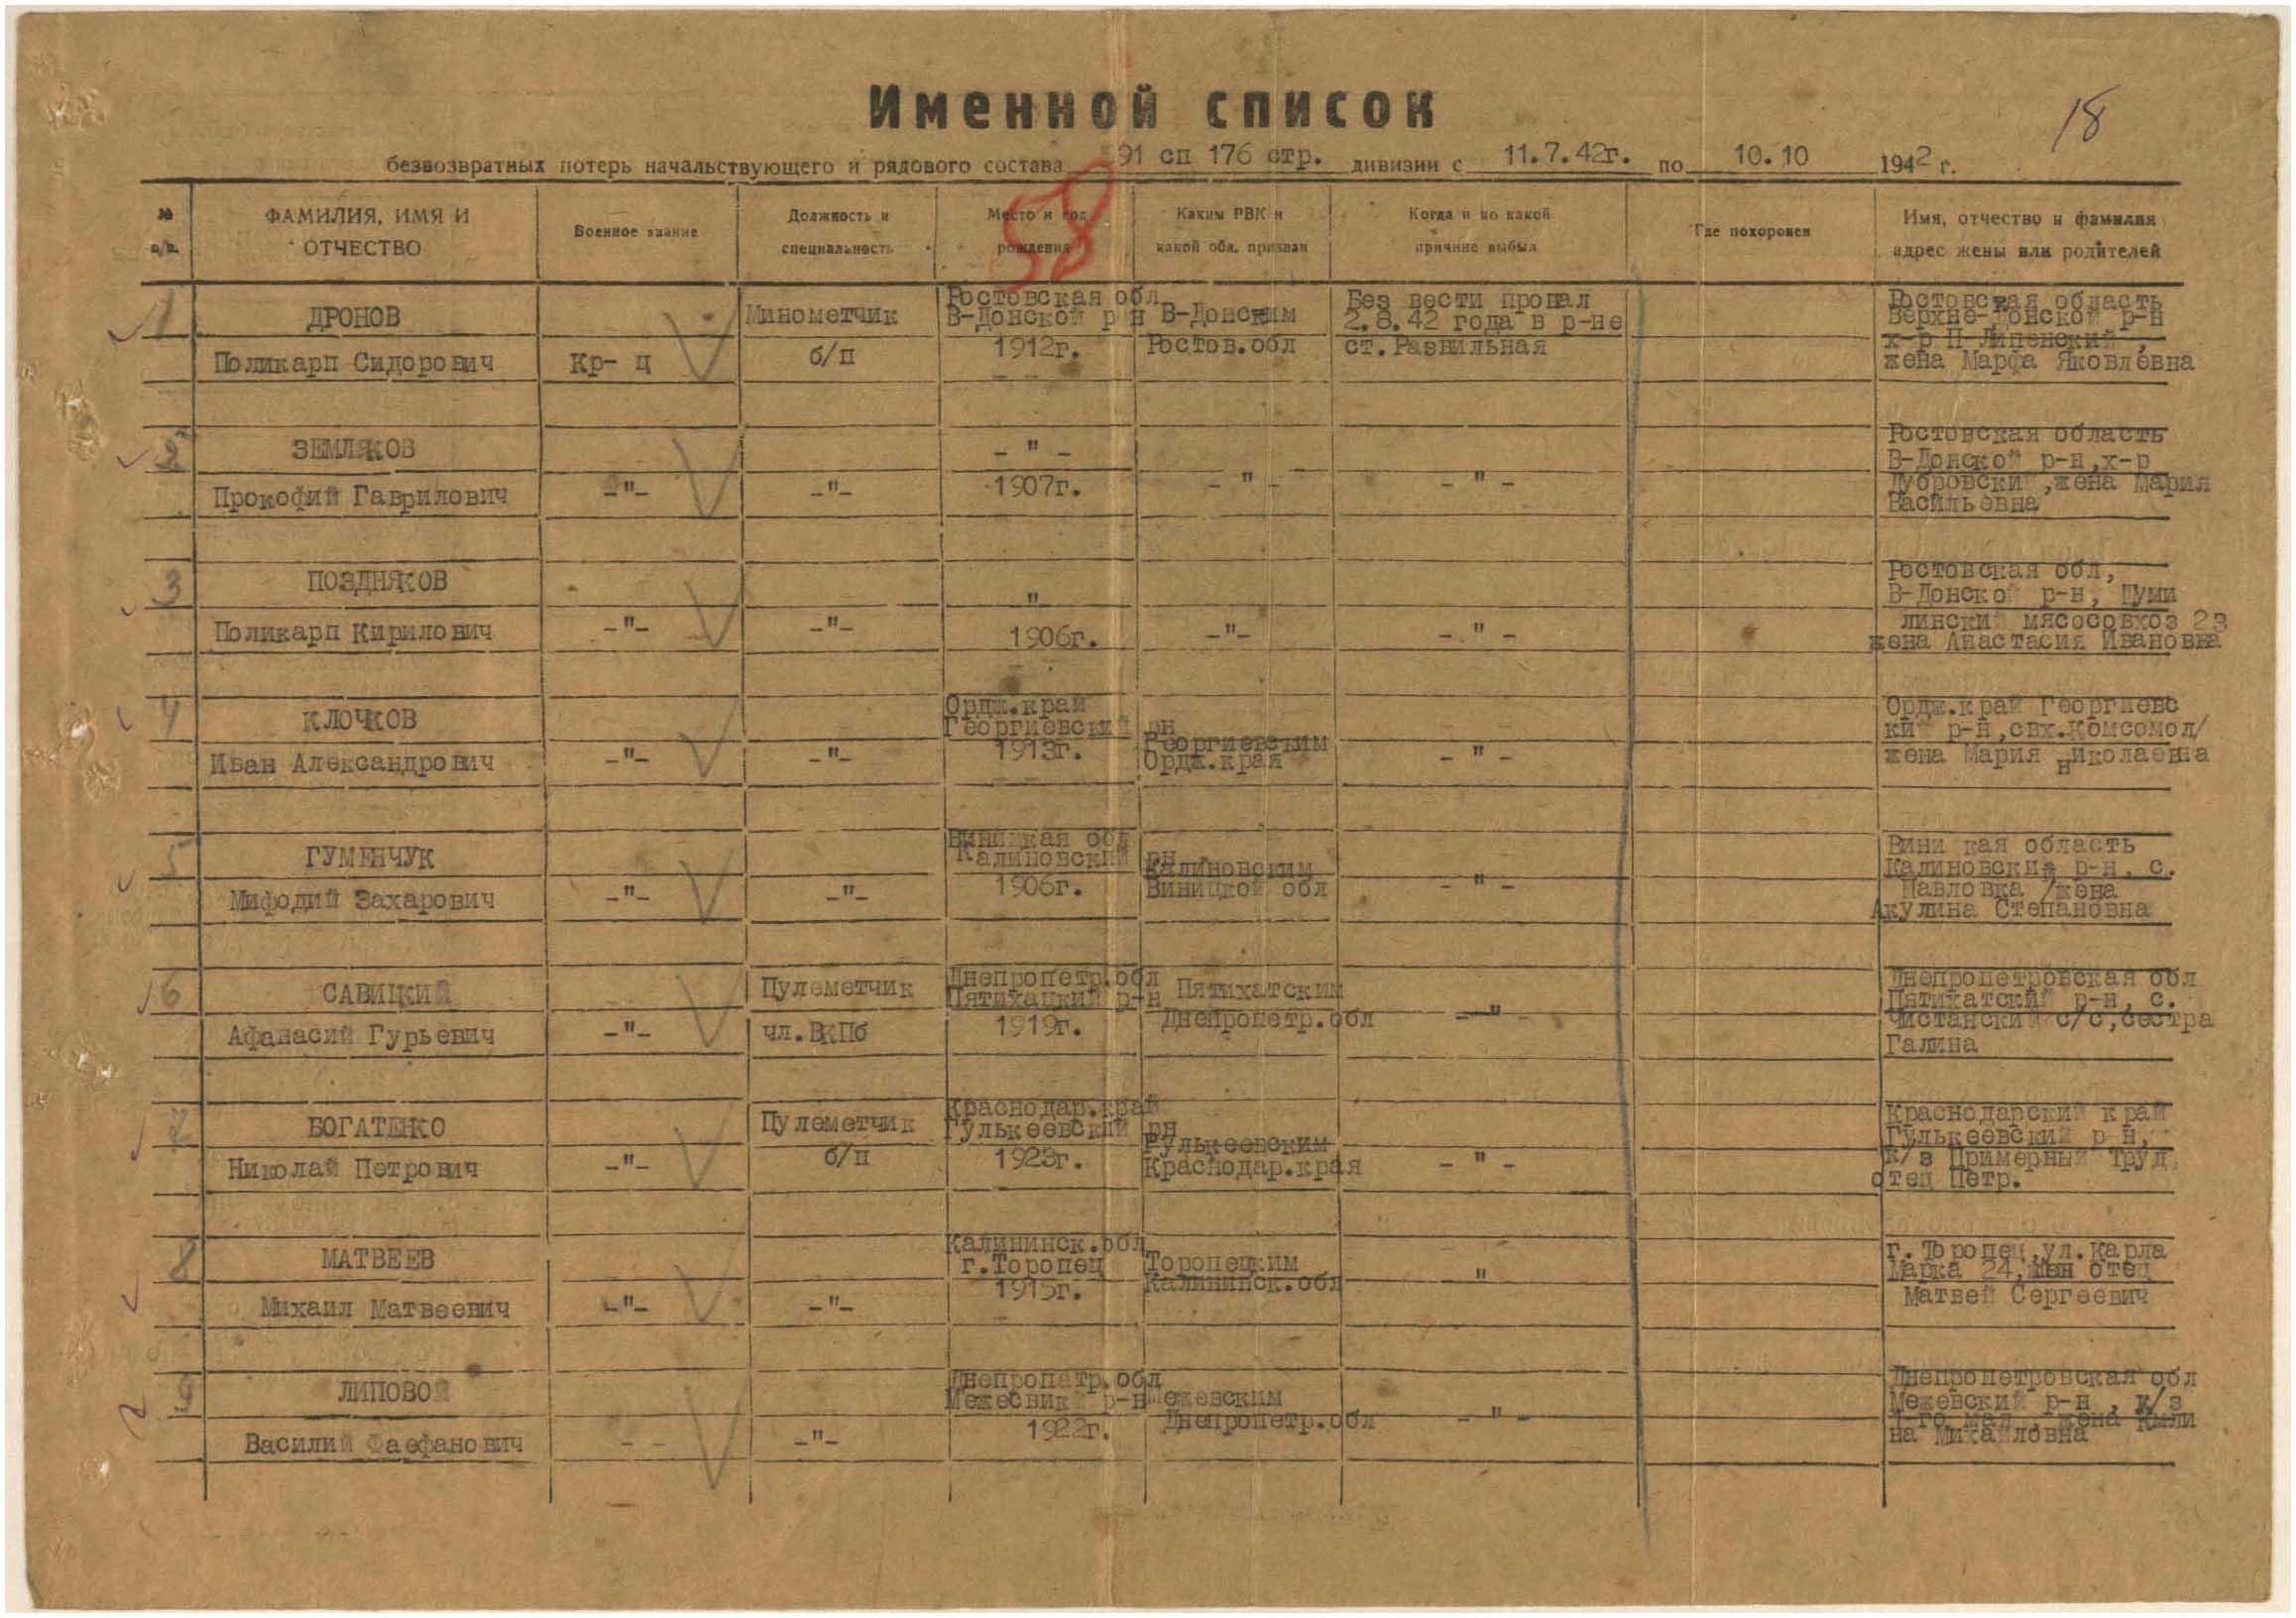 18
Именной список
безвозвратных потерь начальствующего и рядового состава 591 сп 176 стр. дивизии с 11.7.42г. по 10.10 1942 г.
58
№ п/п.
ФАМИЛИЯ, ИМЯ И
ОТЧЕСТВО
Военное звание
Должность и
специальность
Место и год
рождения
Каким РВК и
какой обл. призван
Когда и по какой
причине выбыл
Где похоронен
Имя, отчество и фамилия
адрес жены или родителей
1
ДРОНОВ
Поликарп Сидорович
Кр- ц
Минометчик
б/п
Ростовская обл
В-Донской р н
1912г.
В-Донским
Ростов.обл
Без вести пропал
2.8.42 года в р-не
ст.Развильная
Ростовская область
Верхне-Донской р-н
х-р П-Липенский ,
жена Марфа Яковлевна
2
ЗЕМЛЯКОВ
Прокофий Гаврилович
-"-
-"-
- " -
1907г.
- " -
- " -
Ростовская область
В-Донской р-н,х-р
Дубровский,жена Мария
Васильевна
3
ПОЗДНЯКОВ
Поликарп Кирилович
-"-
-"-
"
1906г.
-"-
- " -
Ростовская обл,
В-Донской р-н, Шуми
линский мясосовхоз 23
жена Анастасия Ивановна
4
КЛОЧКОВ
Иван Александрович
-"-
-"-
Ордж.край
Георгиевский рн
1913г.
Георгиевским
Ордж.края
- " -
Ордж.край Георгиевс
кий р-н,свх.Комсомол/
жена Мария николаевна
5
ГУМЕНЧУК
Мифодий Захарович
-"-
-"-
Виницкая обл
Калиновский рн
1906г.
Калиновским
Виницкой обл
- " -
Вини кая область
Калиновский р-н, с.
Павловка /жена
Акулина Степановна
6
САВИЦКИЙ
Афанасий Гурьевич
-"-
Пулеметчик
чл.ВКПб
Днепропетр.обл
Пятихацкий р-н
1919г.
Пятихатским
Днепропетр.обл
- " -
Днепропетровская обл
Пятихатский р-н, с.
Чистанский с/с,сестра
Галина
7
БОГАТЕНКО
Николай Петрович
-"-
Пулеметчик
б/п
Краснодар.край
Гулькеевский рн
1923г.
Гулькеевским
Краснодар.края
- " -
Краснодарский край
Гулькеевский р н,
к/з Примерный Труд,
отец Петр.
8
МАТВЕЕВ
Михаил Матвеевич
-"-
-"-
Калининск.обл
г.Торопец
1915г.
Торопецким
Калининск.обл
"
г.Торопец,ул.Карла
Марка 24, отец
Матвей Сергеевич
9
ЛИПОВОЙ
Василий
- -
-"-
Днепропатр.обл
Межесвий р-н
1922г.
Межевским
Днепропетр.обл
- " -
Днепропетровская обл
Межевский р-н , к/з
1-го мая , жена
на Михайловна